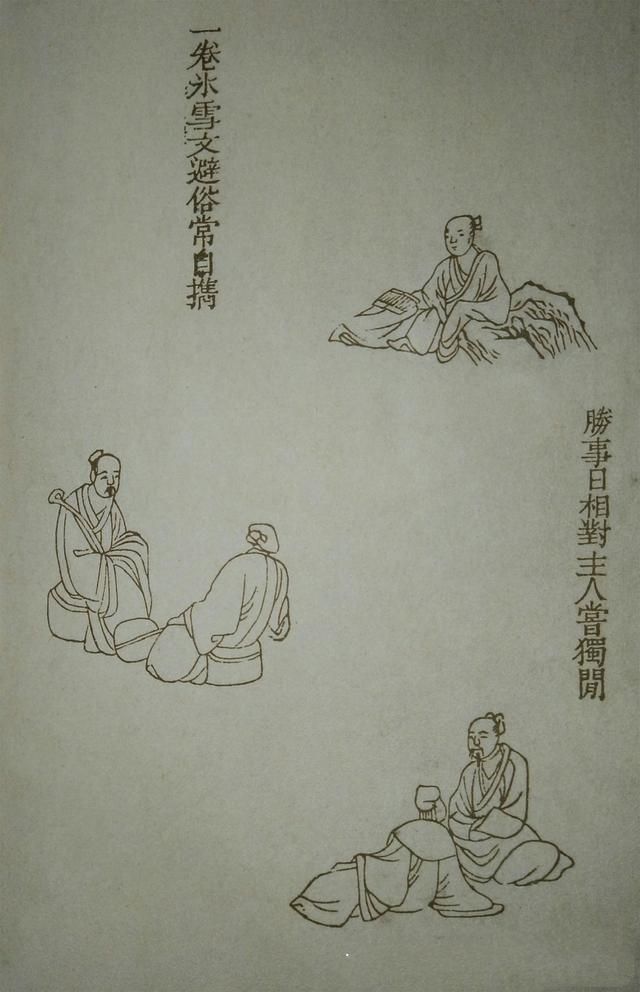 勝事日相對主人嘗獨閒
一卷氷雪文避俗常自攜